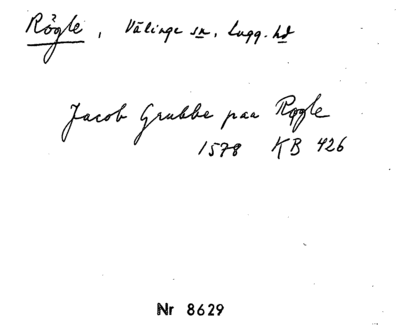 Rögle, Välinge sn, Lugg. hd
Jacob Grubbe paa Røgle
1578 KB 426
Nr 8629